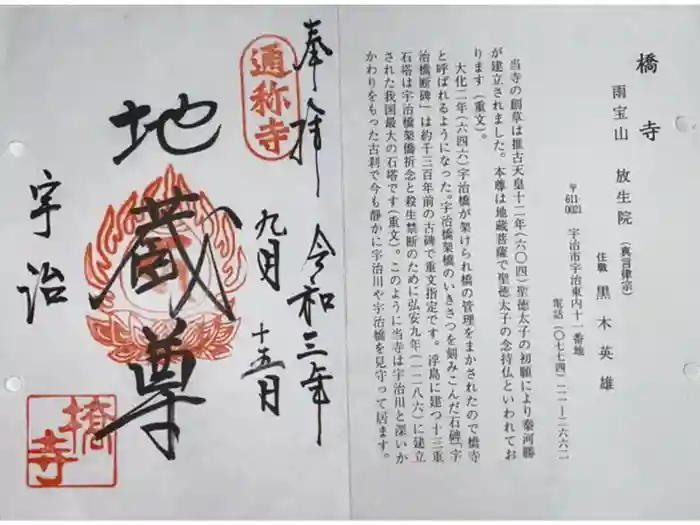 橋寺
雨宝山 放生院 (真言律宗)
住職 黒木英雄
〒611-0021 宇治市宇治東内十一番地
電話(〇七七四)二一ー二六六二
当寺の創草は推古天皇十二年(六〇四)聖徳太子の初願により秦河勝
が建立されました。本尊は地蔵菩薩で聖徳太子の念持仏といわれてお
ります(重文)。
大化二年(六四六)宇治橋が架けられ橋の管理をまかされたので橋寺
と呼ばれるようになった。宇治橋架橋のいきさつを刻みこんだ石碑「宇
治橋断碑」は約千三百年前の古碑で重文指定です。浮島に建つ十三重
石塔は宇治橋架橋祈念と殺生禁断のために弘安九年(一二八六)に建立
された我国最大の石塔です(重文)。このように当寺は宇治川と深いか
かわりをもった古刹で今も静かに宇治川や宇治橋を見守って居ます。
奉拝
令和三年
九月
十五日
通称寺
地蔵尊
宇治
橋寺